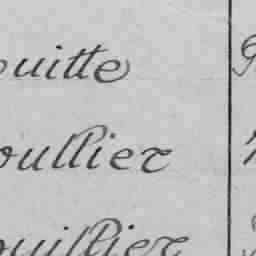 ouitte
oullier
ouillier